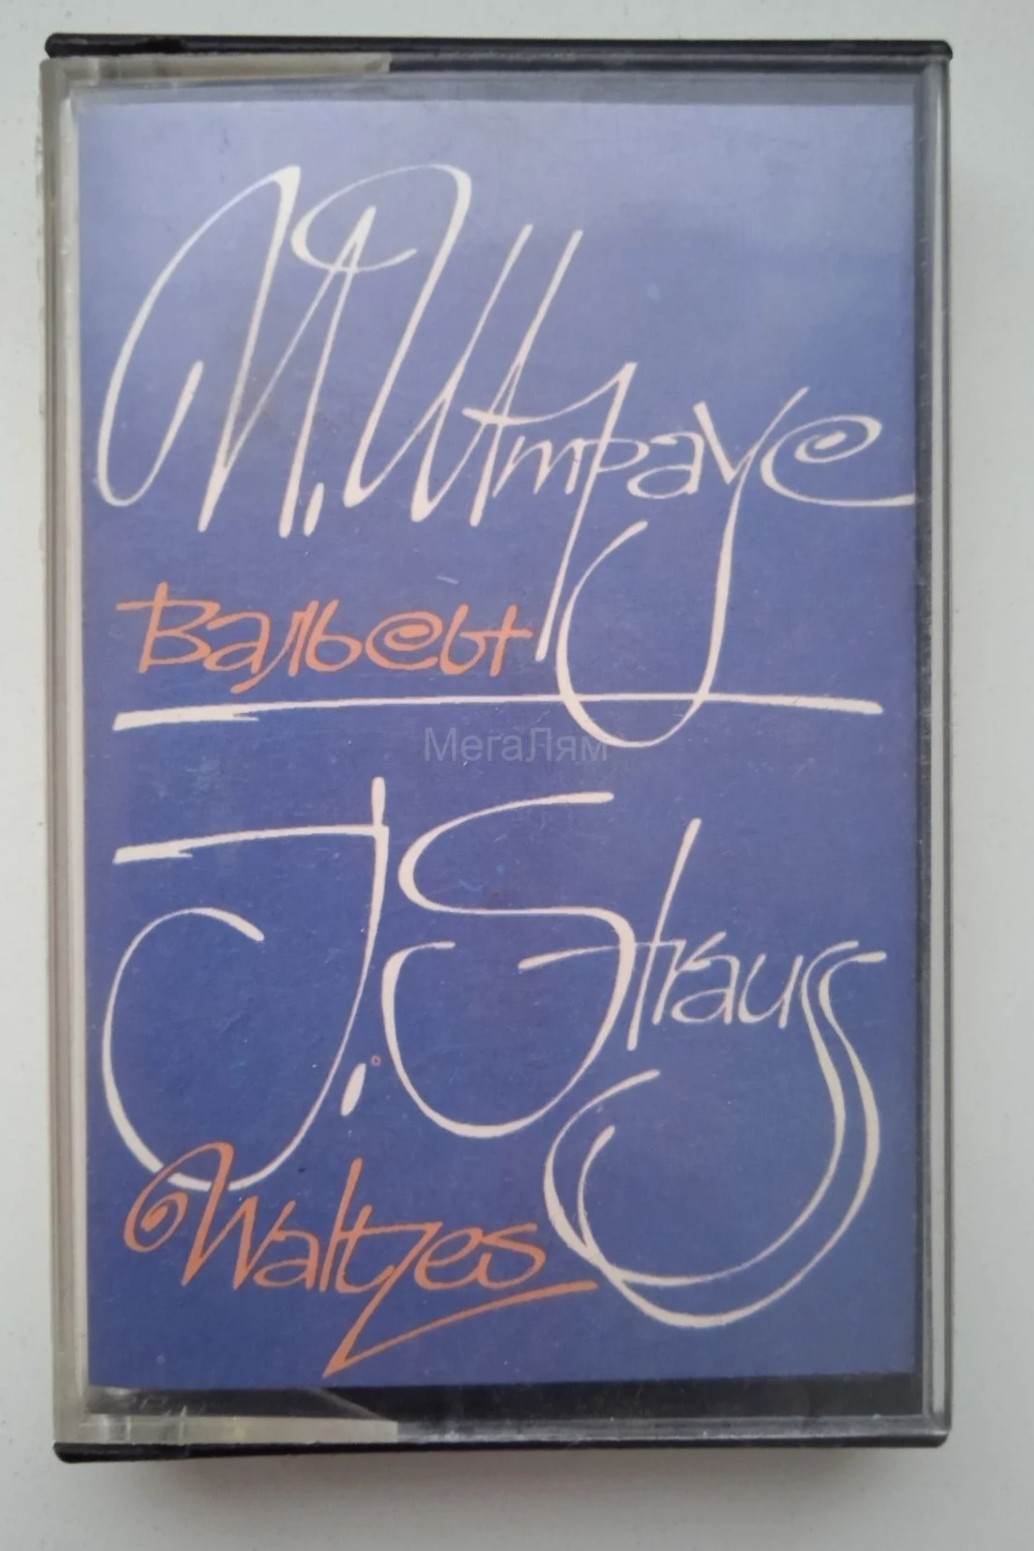 И. Штраус
Вальсы
МегаЛям
J. Strauss
Waltzes